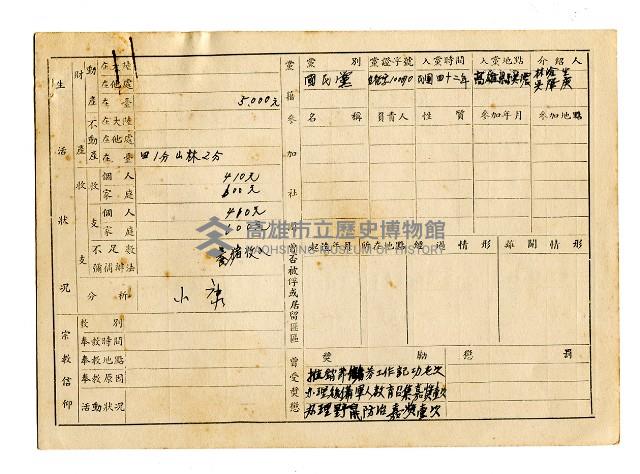 生活狀況
財產
動產
在大陸
在他處
在臺 5.000元
不動產
在大陸
在他處
在臺 田1分山林2分
收支
收
個人 410元
家庭 600元
支
個人 460元
家庭
不足數彌補辦法 養猪收入
分析 小康
宗教信仰
教別
奉教時間
奉教地點
奉教原因
活動狀況
黨籍參加社
黨別 黨證字號 入黨時間 入黨地點 介紹人
國民黨 民國四十二年
名稱 負責人 性質 參加年月 參加地點
曾否被俘或居留匪區
起迄年月 所在地點 經過情形 離開情形
曾受獎懲
獎勵 懲罰
工作記功乙次
办理後備軍人教育召集嘉獎壹次
办理野鼠防治嘉獎壹次
高雄市立歷史博物館
KAOHSIUNG MUSEUM OF HISTORY